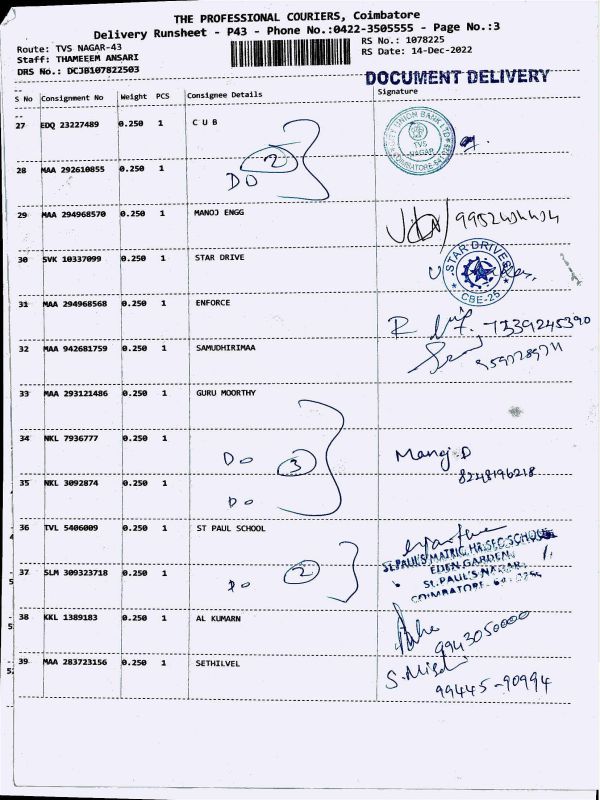 THE PROFESSIONAL COURIERS, Coimbatore
Delivery Runsheet - P43 - Phone No.:0422-3505555 - Page No.:3
Route: TVS NAGAR-43
RS No.: 1078225
Staff: THAMEEEM ANSARI
RS Date: 14-Dec-2022
DRS No.: DCJB107822503
DOCUMENT DELIVERY
S No Consignment No Weight PCS Consignee Details Signature
27 EDQ 23227489 0.250 1 C U B
CITY UNION BANK LTD
TVS NAGAR
28 MAA 292610855 0.250 1
2
DO
29 MAA 294968570 0.250 1 MANOJ ENGG
30 SVK 10337099 0.250 1 STAR DRIVE
STAR DRIVES
CBE-25
31 MAA 294968568 0.250 1 ENFORCE
7339245390
32 MAA 942681759 0.250 1 SAMUDHIRIMAA
33 MAA 293121486 0.250 1 GURU MOORTHY
34 NKL 7936777 0.250 1
Do 3
Manoj.D
8248196218
35 NKL 3092874 0.250 1
Do
36 TVL 5406009 0.250 1 ST PAUL SCHOOL
St.PAUL'S MATRIC.HR.SEC.SCHOOL
EDEN GARDEN
St.PAUL'S NAGAR
COIMBATORE-
37 SLM 309323718 0.250 1
Do 2
38 KKL 1389183 0.250 1 AL KUMARN
9943050000
39 MAA 283723156 0.250 1 SETHILVEL
99445-90994